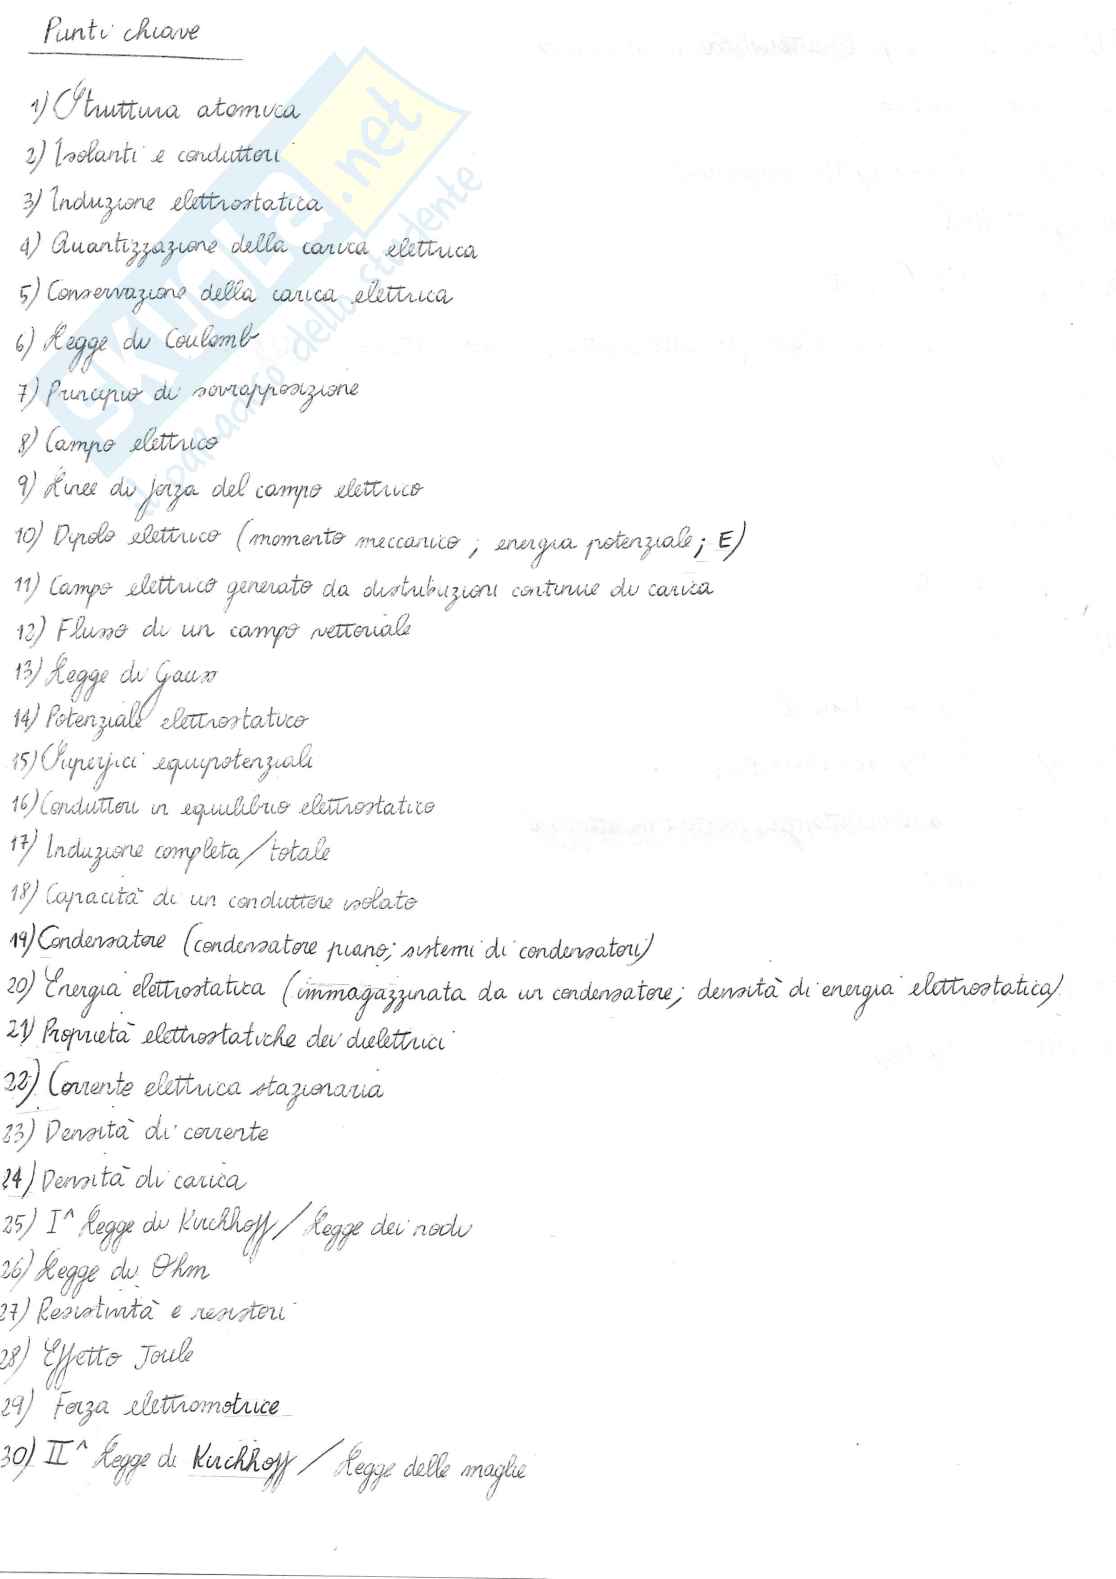 Punti chiave
1) Struttura atomica
2) Isolanti e conduttori
3) Induzione elettrostatica
4) Quantizzazione della carica elettrica
5) Conservazione della carica elettrica
6) Legge di Coulomb
7) Principio di sovrapposizione
8) Campo elettrico
9) Linee di forza del campo elettrico
10) Dipolo elettrico (momento meccanico ; energia potenziale; E)
11) Campo elettrico generato da distribuzioni continue di carica
12) Flusso di un campo vettoriale
13) Legge di Gauss
14) Potenziale elettrostatico
15) Superfici equipotenziali
16) Conduttori in equilibrio elettrostatico
17) Induzione completa/totale
18) Capacità di un conduttore isolato
19) Condensatore (condensatore piano; sistemi di condensatori)
20) Energia elettrostatica (immagazzinata da un condensatore; densità di energia elettrostatica)
21) Proprietà elettrostatiche dei dielettrici
22) Corrente elettrica stazionaria
23) Densità di corrente
24) Densità di carica
25) I^ Legge di Kirchhoff / Legge dei nodi
26) Legge di Ohm
27) Resistività e resistori
28) Effetto Joule
29) Forza elettromotrice
30) II^ Legge di Kirchhoff / Legge delle maglie
SKUOLA.net
il paradiso dello studente